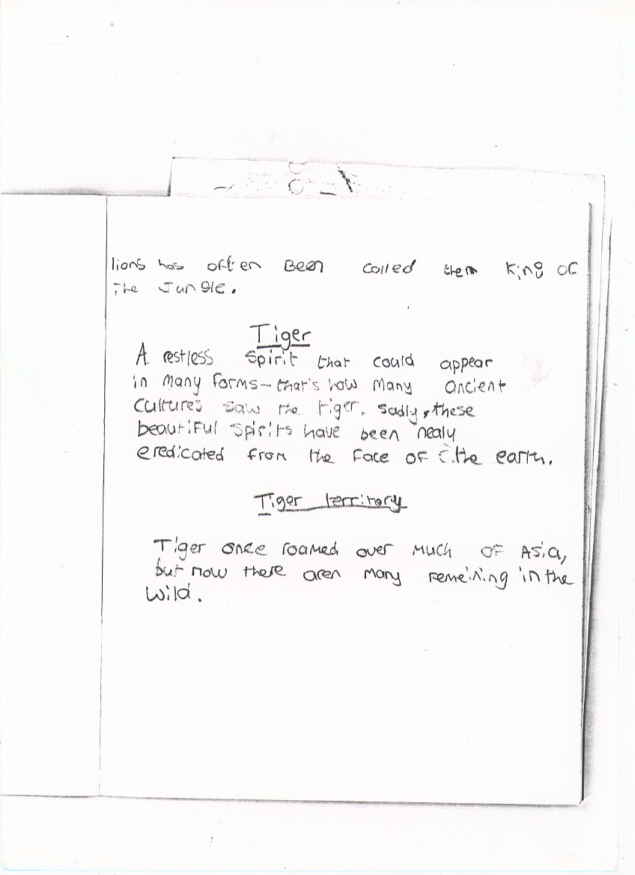 lions has often Been called them King OF
The Jungle.
Tiger
A restless spirit that could appear
in many forms-that's how many ancient
cultures saw the tiger. sadly, these
beautiful spirits have been nealy
eredicated from the face of the earth.
Tiger territory
Tiger once roamed over much OF Asia,
but now there aren many remeining in the
wild.